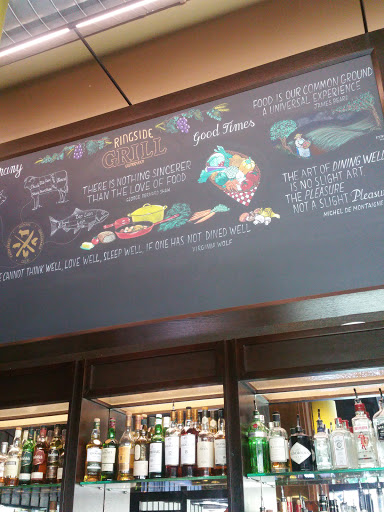 pany
RINGSIDE
GRILL
Good Times
FOOD IS OUR COMMON GROUND
A UNIVERSAL EXPERIENCE
JAMES BEARD
THERE IS NOTHING SINCERER
THAN THE LOVE OF FOOD
GEORGE BERNARD SHAW
THE ART OF DINING WELL
IS NO SLIGHT ART.
THE PLEASURE
NOT A SLIGHT Pleasu
MICHEL DE MONTAIGNE
E CANNOT THINK WELL, LOVE WELL, SLEEP WELL, IF ONE HAS NOT DINED WELL
VIRGINIA WOLF